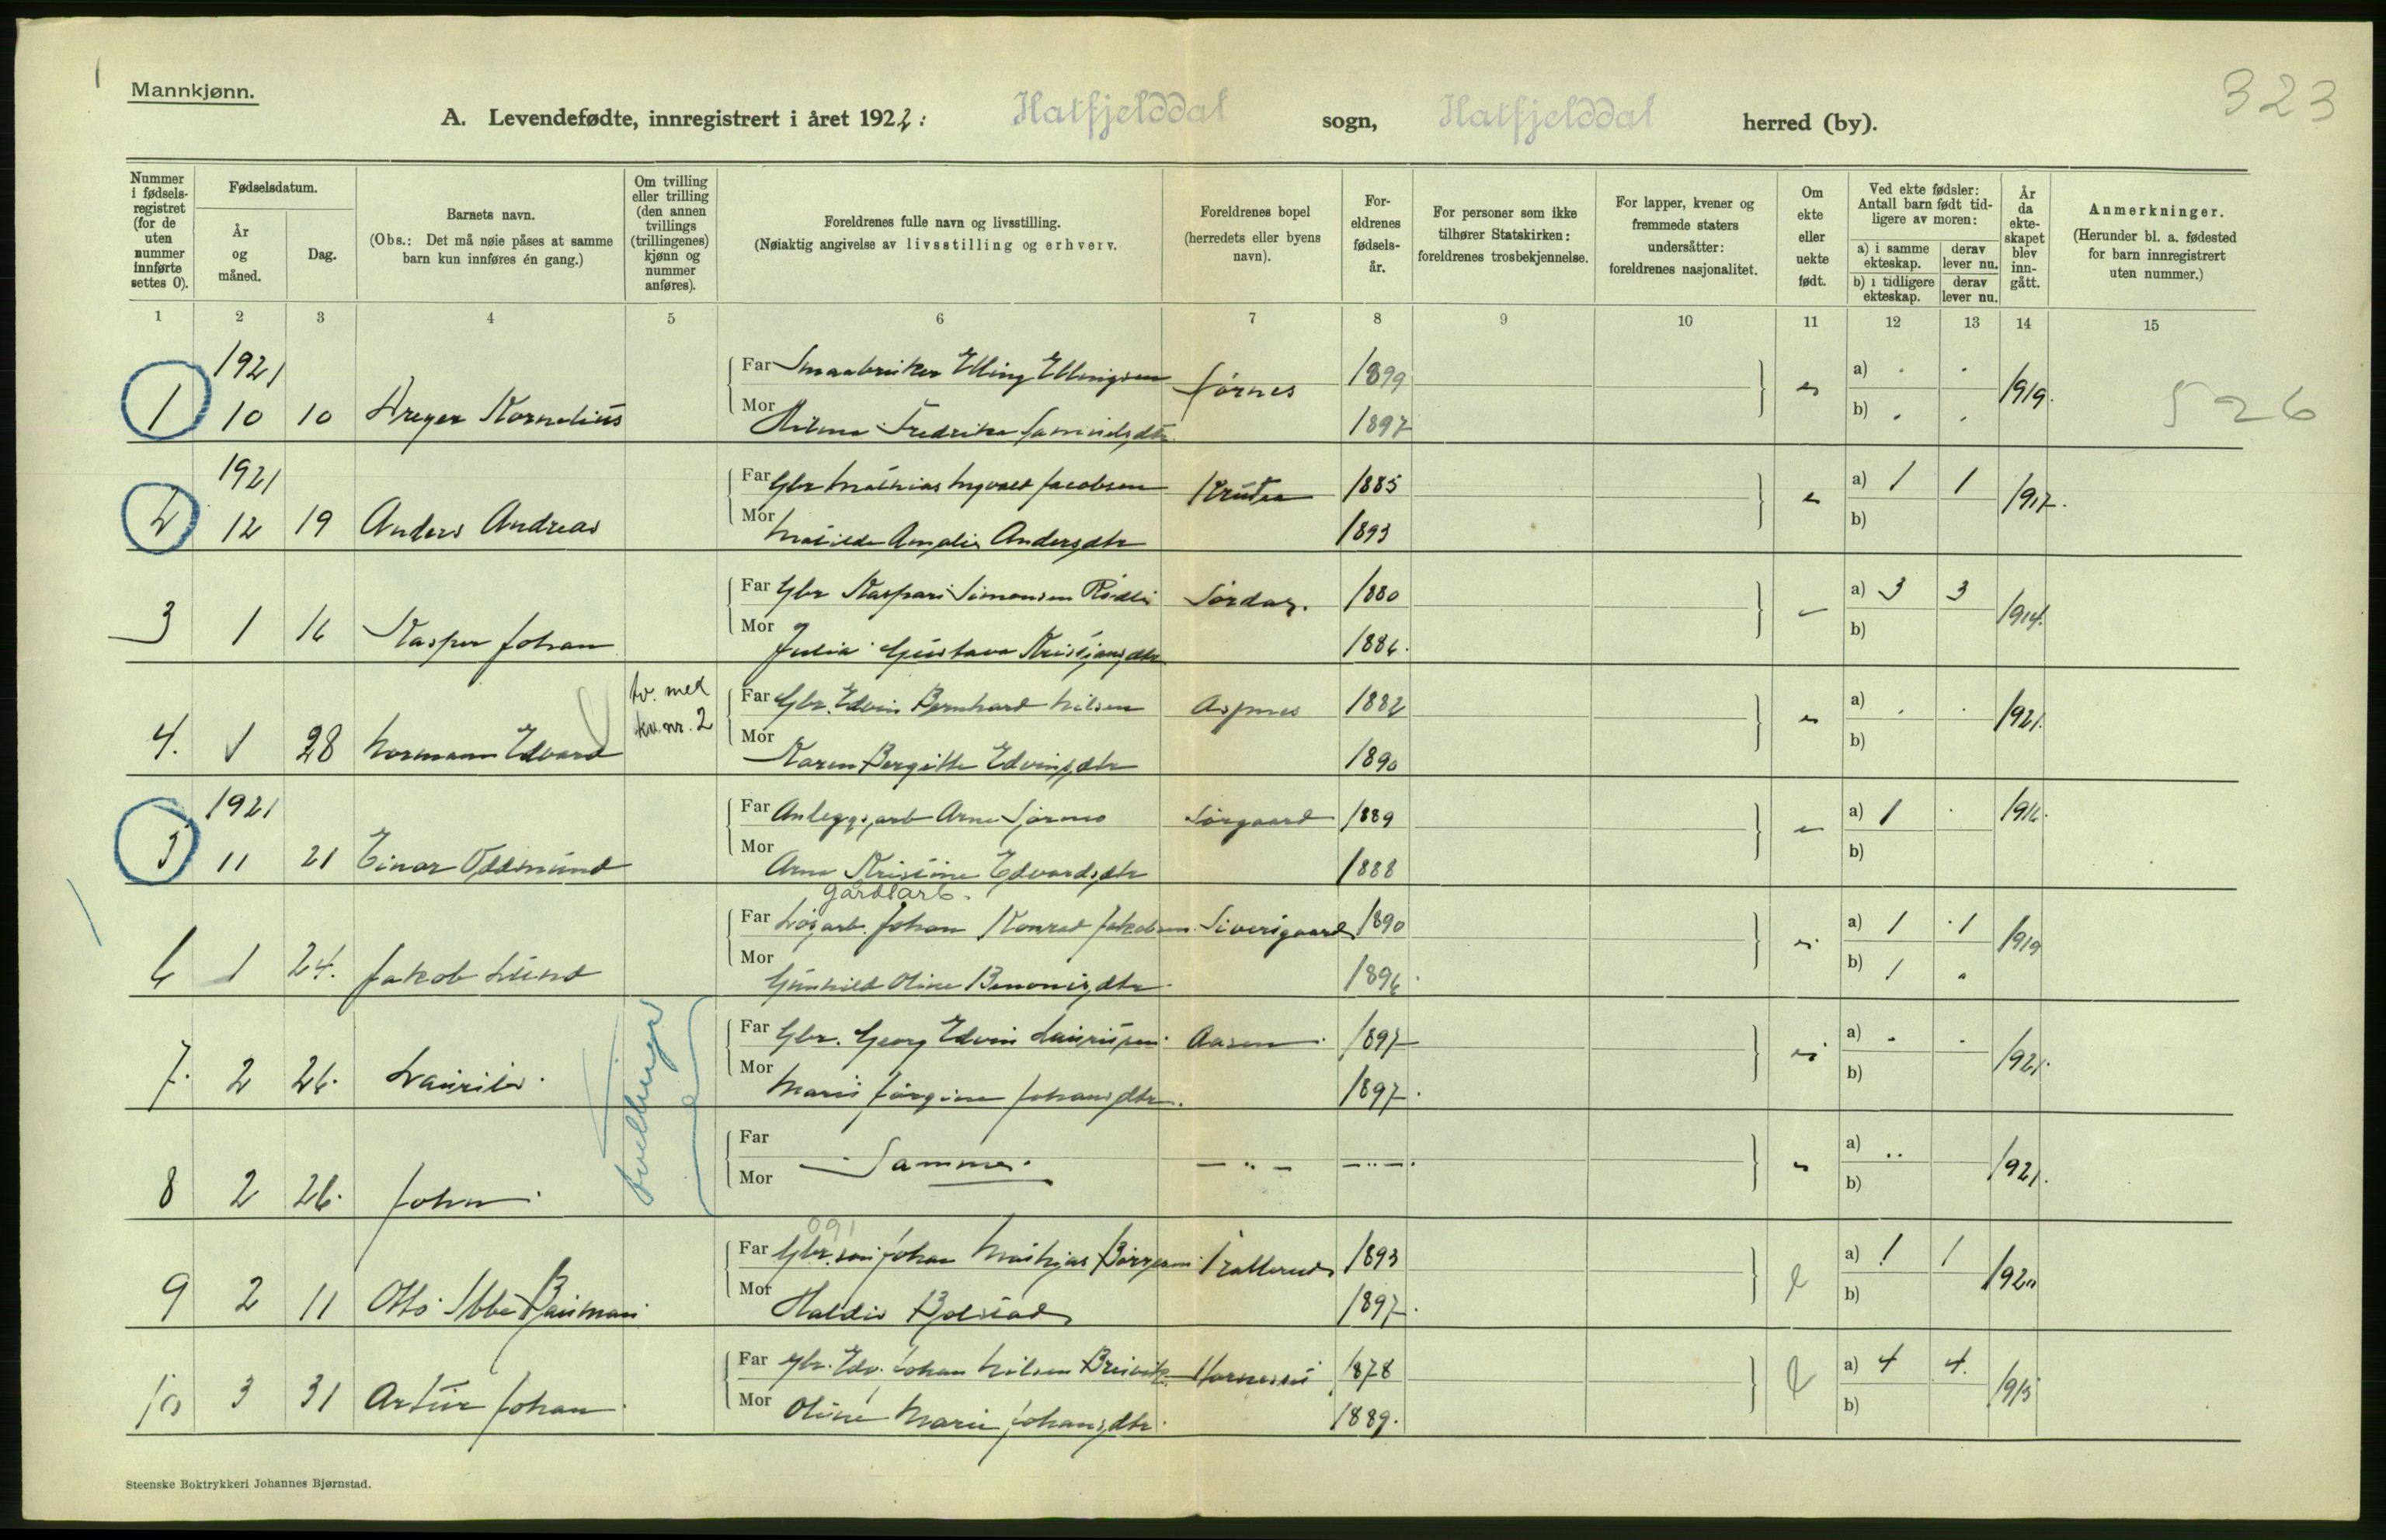 Mannkjønn.
323
A. Levendefødte, innregistrert i året 1922: Hatfjelddal sogn, Hatfjelddal herred (by).
Nummer i fødsels-registret (for de uten nummer innførte settes 0).
Fødselsdatum.
År og måned.
Dag.
Barnets navn.
(Obs.: Det må nøie påses at samme barn kun innføres én gang.)
Om tvilling eller trilling (den annen tvillings (trillingenes) kjønn og nummer anføres).
Foreldrenes fulle navn og livsstilling.
(Nøiaktig angivelse av livsstilling og erhverv.
Foreldrenes bopel (herredets eller byens navn).
For-eldrenes fødsels-år.
For personer som ikke tilhører Statskirken: foreldrenes trosbekjennelse.
For lapper, kvener og fremmede staters undersåtter: foreldrenes nasjonalitet.
Om ekte eller uekte født.
Ved ekte fødsler: Antall barn født tid-ligere av moren:
a) i samme ekteskap.
derav lever nu.
b) i tidligere ekteskap.
derav lever nu.
År da ekte-skapet blev inn-gått.
Anmerkninger.
(Herunder bl. a. fødested for barn innregistrert uten nummer.)
1 2 3 4 5 6 7 8 9 10 11 12 13 14 15
1921
Far Smaabruker Elling Ellingsen 1899 a) 1919.
1 10 10 Dreyer Kornelius Mor Hilma Fredrika 1897 b) 526
1921
Far Gbr Mathias Ingvald Jacobsen 1885 a) 1 1 1917.
2 12 19 Anders Andreas Mor Mathilde Amalie Andersdtr 1893 b)
Far Gbr Kaspar Simonsen Rødli Sørdag. 1880 a) 3 3 1914.
3 1 16 Kasper Johan Mor Julia Gustava Kristjansdtr 1886. b)
tv. med kv. nr. 2
Far Gbr. Edvin Bernhard Nilsen Aspnes 1882 a) 1921.
4. 1 28 Normann Edvard Mor Karen Bergitte Edvinsdtr 1890 b)
1921
Far Anleggsarb Arne Sørgaard 1889 a) 1 1916.
5 11 21 Einar Oddmund Mor Kristine Edvardsdtr 1888 b)
gårdsarb.
Far Løsarb. Johan Konrad Jakobsen Sivertgaard 1890 a) 1 1 1919
6 1 24. Jakob Lund Mor Gunhild Oline Benonisdtr 1896. b) 1
tvillinger
Far Gbr. Georg Edvin Lauritsen Aasen 1897 a) 1921.
7. 2 26. Laurits. Mor Marie Jørgine Johansdtr. 1897. b)
Far a)
8 2 26. John. Mor Samme. b) 1921.
091
Far Gbr. søn Johan Mathias Børgesen 1893 a) 1 1
9 2 11 Otto Mor Haldis 1897. b) 1920
Far Gbr. Edv. Johan Nilsen Breivik 1878 a) 4 4. 1915
10 3 31 Artur Johan Mor Oline Marie Johansdtr. 1889. b)
Steenske Boktrykkeri Johannes Bjørnstad.